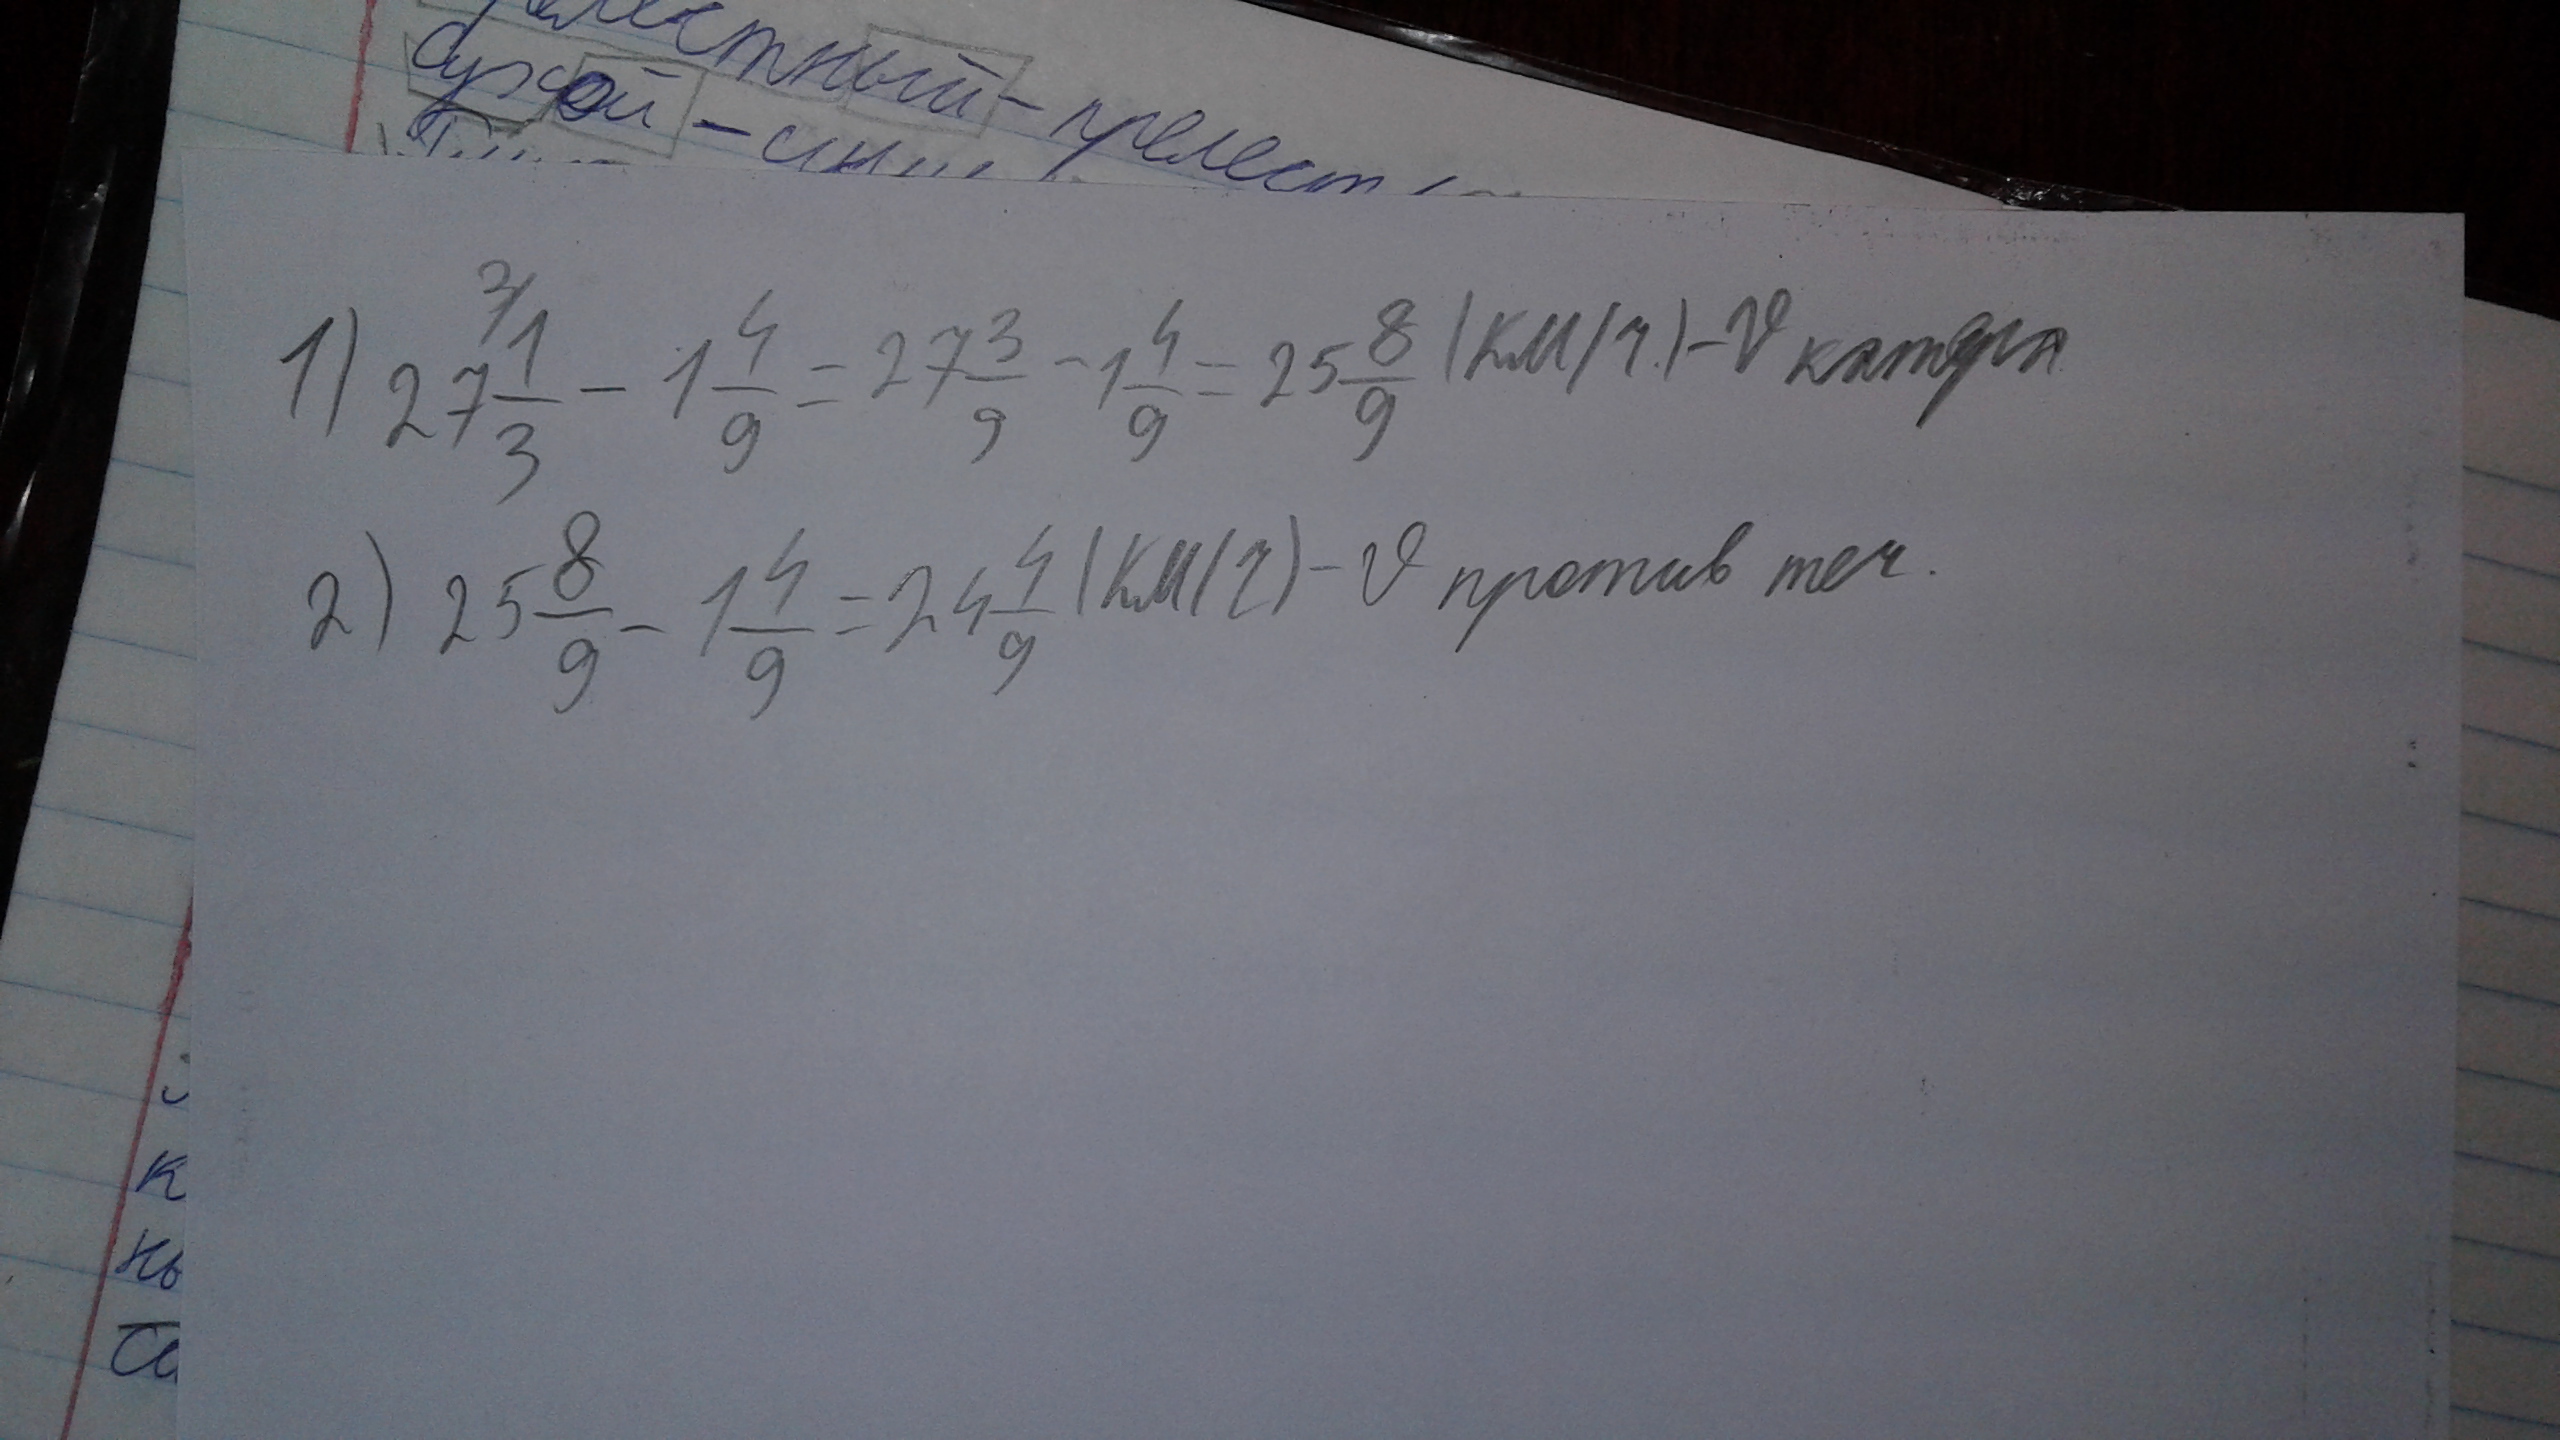 сухой -
1) 27 1/3 - 1 4/9 = 27 3/9 - 1 4/9 = 25 8/9 (км/ч.) - V катера
2) 25 8/9 - 1 4/9 = 24 4/9 (км/ч) - V против теч.
к